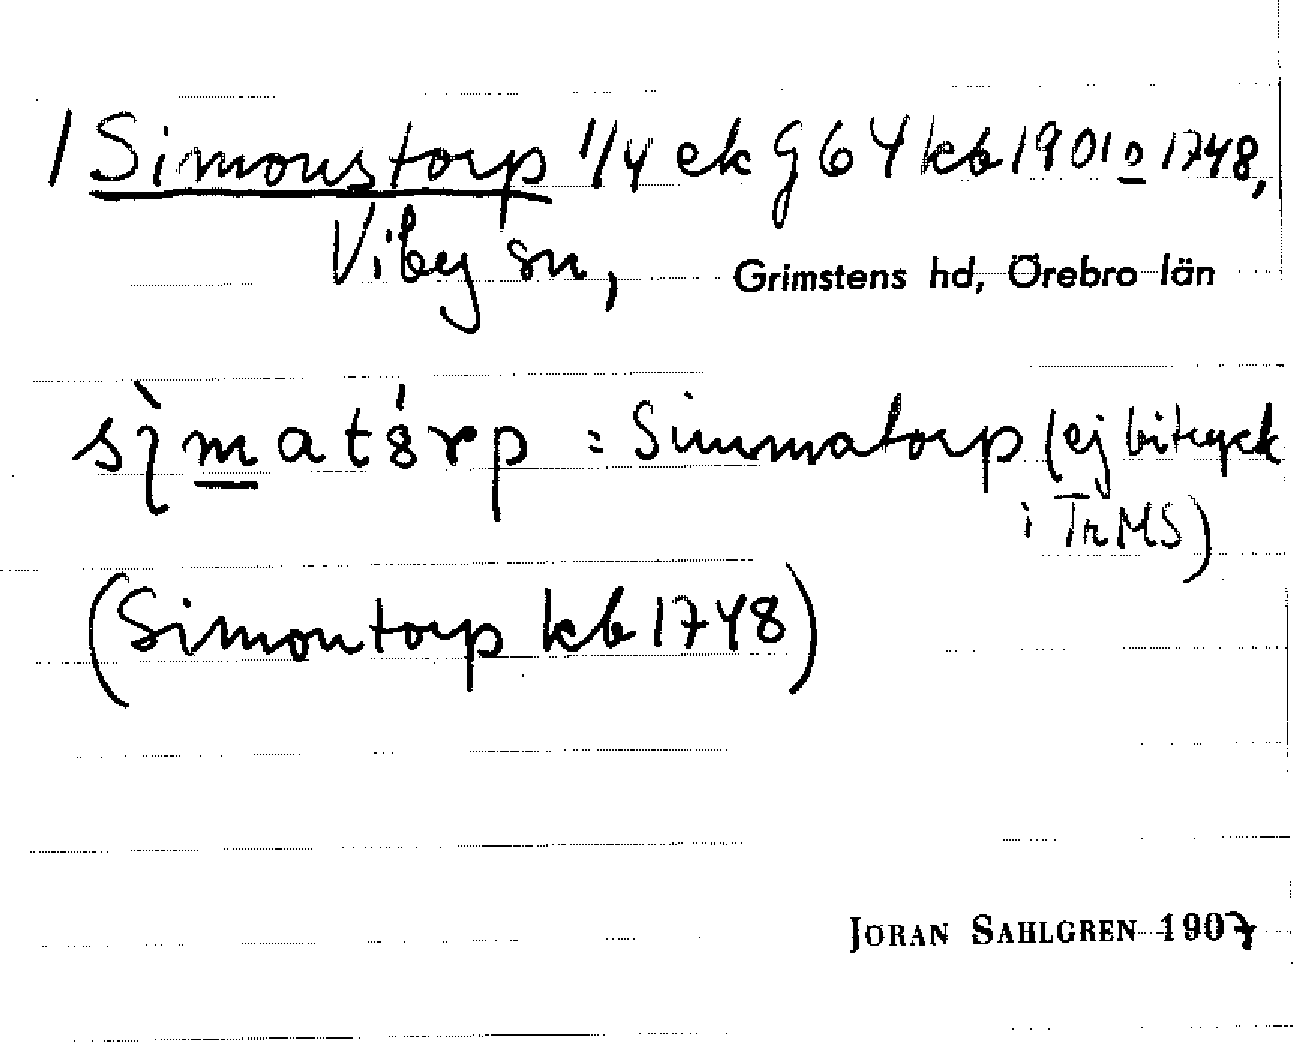 1 Simonstorp 1/4 ek G 64 kb 1901 o 1748,
Viby sn, Grimstens hd, Örebro län
= Simmatorp (ej
i TrMS)
(Simontorp kb 1748)
JORAN SAHLGREN 1907